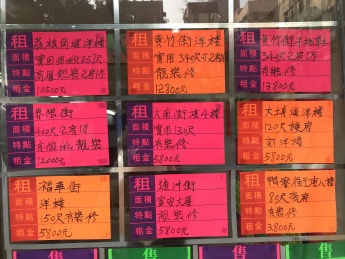 租 荔枝角道洋樓
面積 實用面積257尺
特點 高層靚裝2房1厅
租金 10500元
租 黃竹街洋樓
面積 實用340尺可2房
特點 靚裝修
租金 12800元
租 黃竹街
面積 340尺2房1厅
特點 有裝修
租金 13800元
租
面積 400尺2房1厅
特點 靚裝
租金 12000元
租 大南街
面積 實用130尺
特點 有裝修
租金 5800元
租 大埔道洋樓
面積 120尺
特點 新洋樓
租金 5800元
租 福華街
面積 洋樓
特點 150尺有裝修
租金 5800元
租 通洲街
面積 富安大廈
特點 靚裝修
租金 5800元
租 鴨寮街
面積 80尺
特點 有裝修
租金 3800元
售
售
售